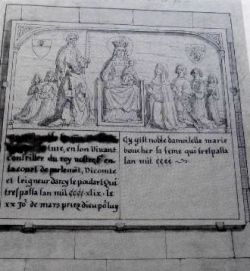 ture, en son vivant
conseiller du roy nostre en
la court de parlemẽt, Viconte
et seigneur darcy le ponsart qui
trespassa lan mil cccc xlix le
xx jo.r de mars priez dieu po.r luy
Cy gist noble damoiselle marie
boucher sa feme qui trespassa
lan mil cccc